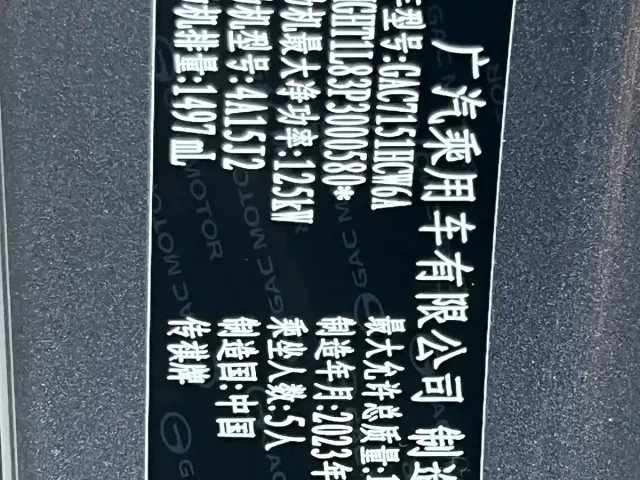 广汽乘用车有限公司 制造
车型号:GAC7151HCW6A
最大允许总质量:1
GHT1L83P3000580*
制造年月:2023年
机最大净功率:125kW
乘坐人数:5人
机型号:4A15J2
制造国:中国
机排量:1497mL
传祺牌
GAC MOTOR